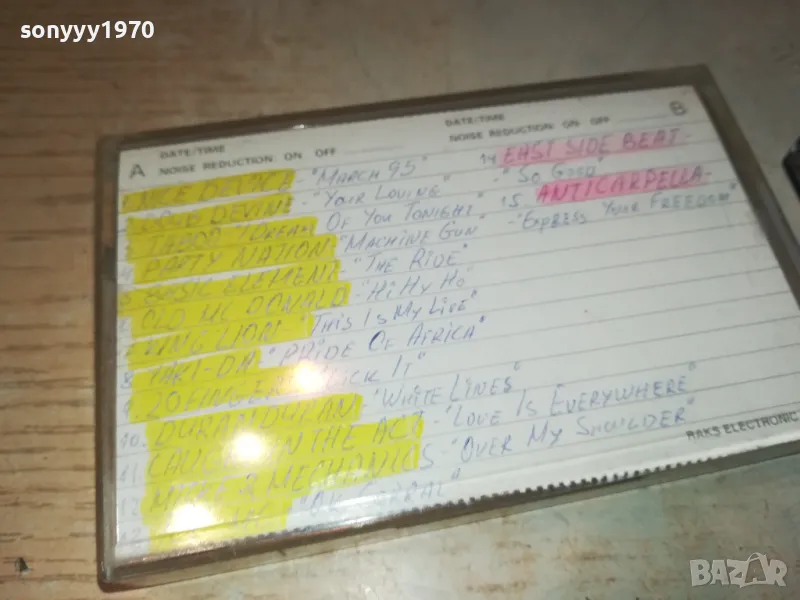 sonyyy1970
A DATE/TIME
NOISE REDUCTION: ON OFF
DATE/TIME B
NOISE REDUCTION: ON OFF
1. NICE DEVICE - "MARCH 95"
DEVINE - "YOUR LOVING"
"DREAM OF YOU TONIGHT"
4 PARTY NATION "MACHINE GUN"
5 BASIC ELEMENT - "THE RIDE"
6 OLD MC DONALD - "HI HY HO"
7. KING LION "THIS IS MY LIFE"
8 "PRIDE OF AFRICA"
9. 20 FINGERS IT"
10. DURAN DURAN "WHITE LINES"
11 CAUGHT IN THE ACT - "LOVE IS EVERYWHERE"
12 MIKE & MECHANICS - "OVER MY SHOULDER"
14 EAST SIDE BEAT -
- "SO GOOD"
15 ANTICARPELLA -
- "EXPRESS YOUR FREEDOM"
RAKS ELECTRONIC
BAZAR